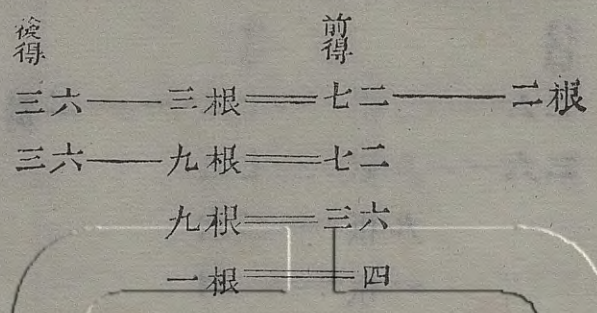 後得 前得
三六——三根══七二———二根
三六——九根══七二
九根══三六
一根══四